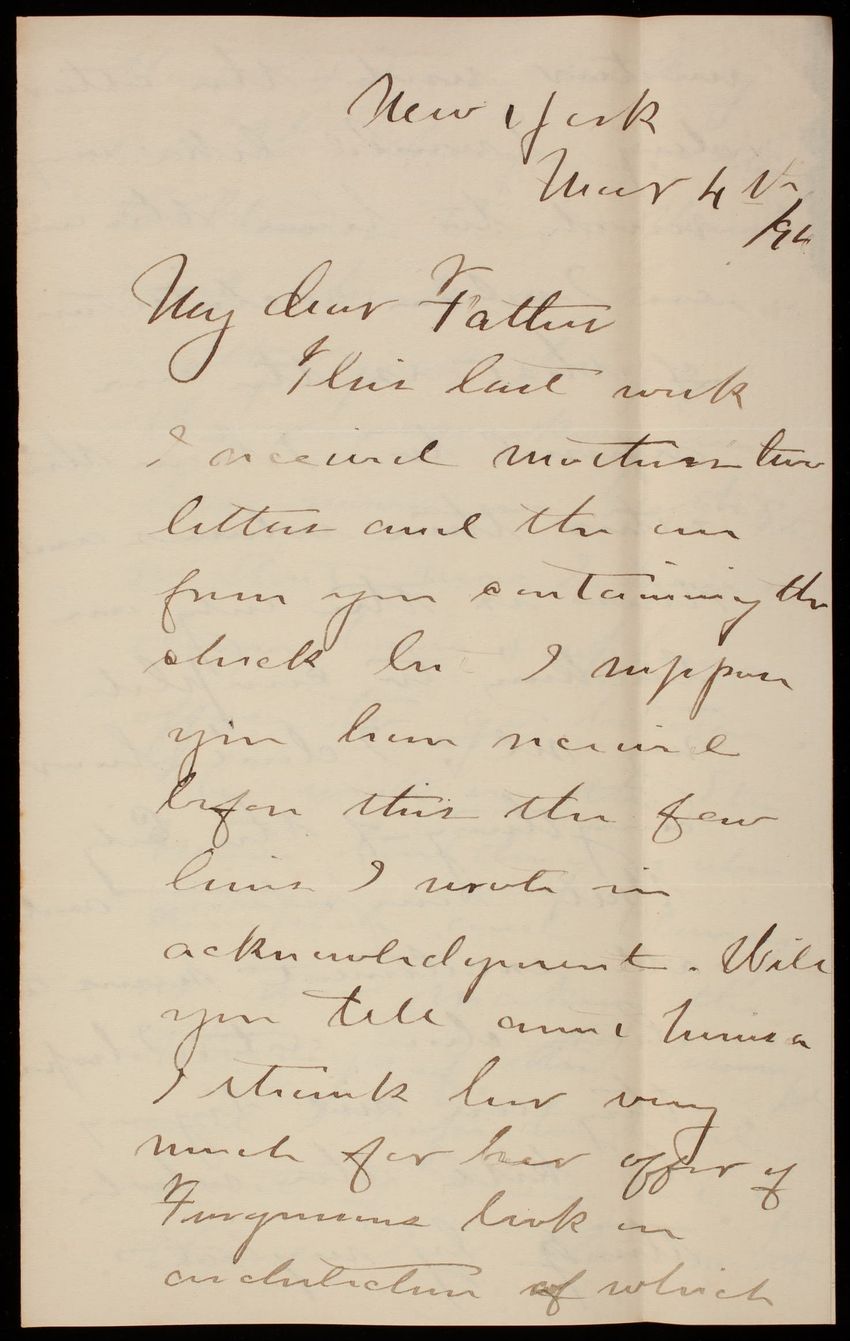 New York
Mar 4th
My dear Father
This last week
I received mothers two
letters and the one
from you containing the
check but I suppose
you have received
before this the few
lines I wrote in
acknowledgement. Will
you tell
I thank her very
much for her offer of
Furgusons book on
architecture of which